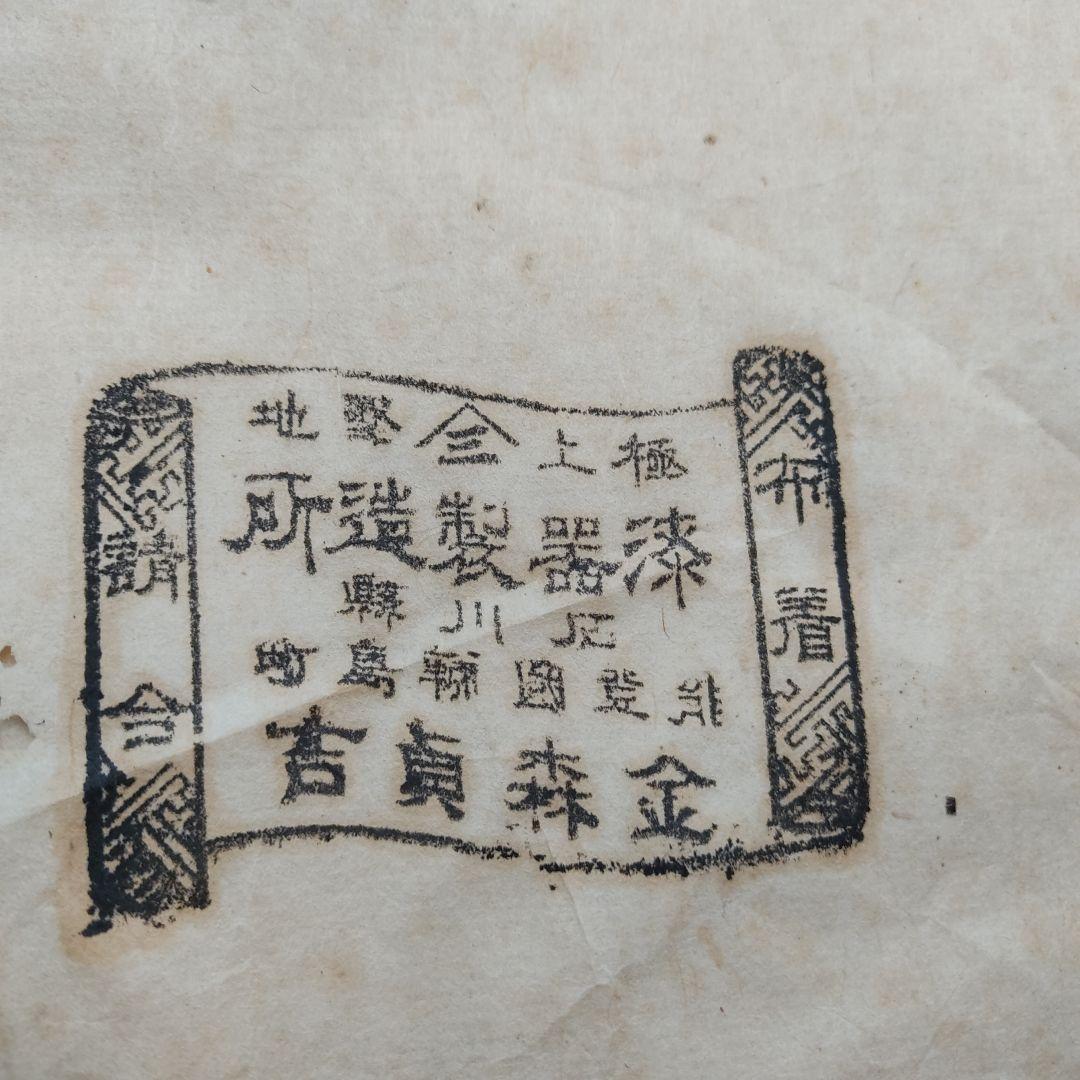 布着
極上 三 堅地
漆器製造所
石川縣
能登國輪島町
金森貞吉
請合